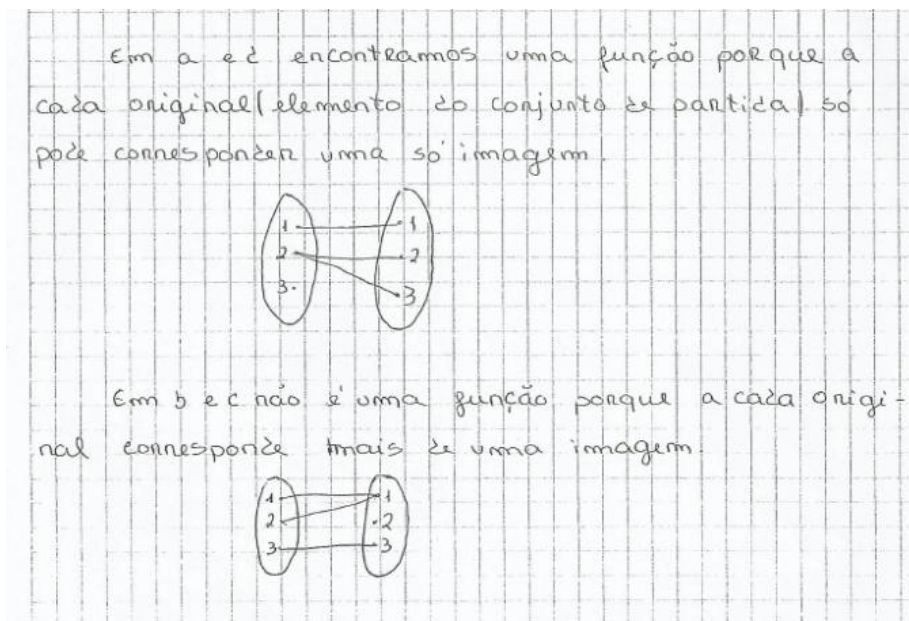 Em a e d encontramos uma função porque a
cada original (elemento do conjunto de partida) só
pode corresponder uma só imagem.
1 1
2 2
3 3
Em b e c não é uma função porque a cada origi-
nal corresponde mais de uma imagem.
1 1
2 2
3 3